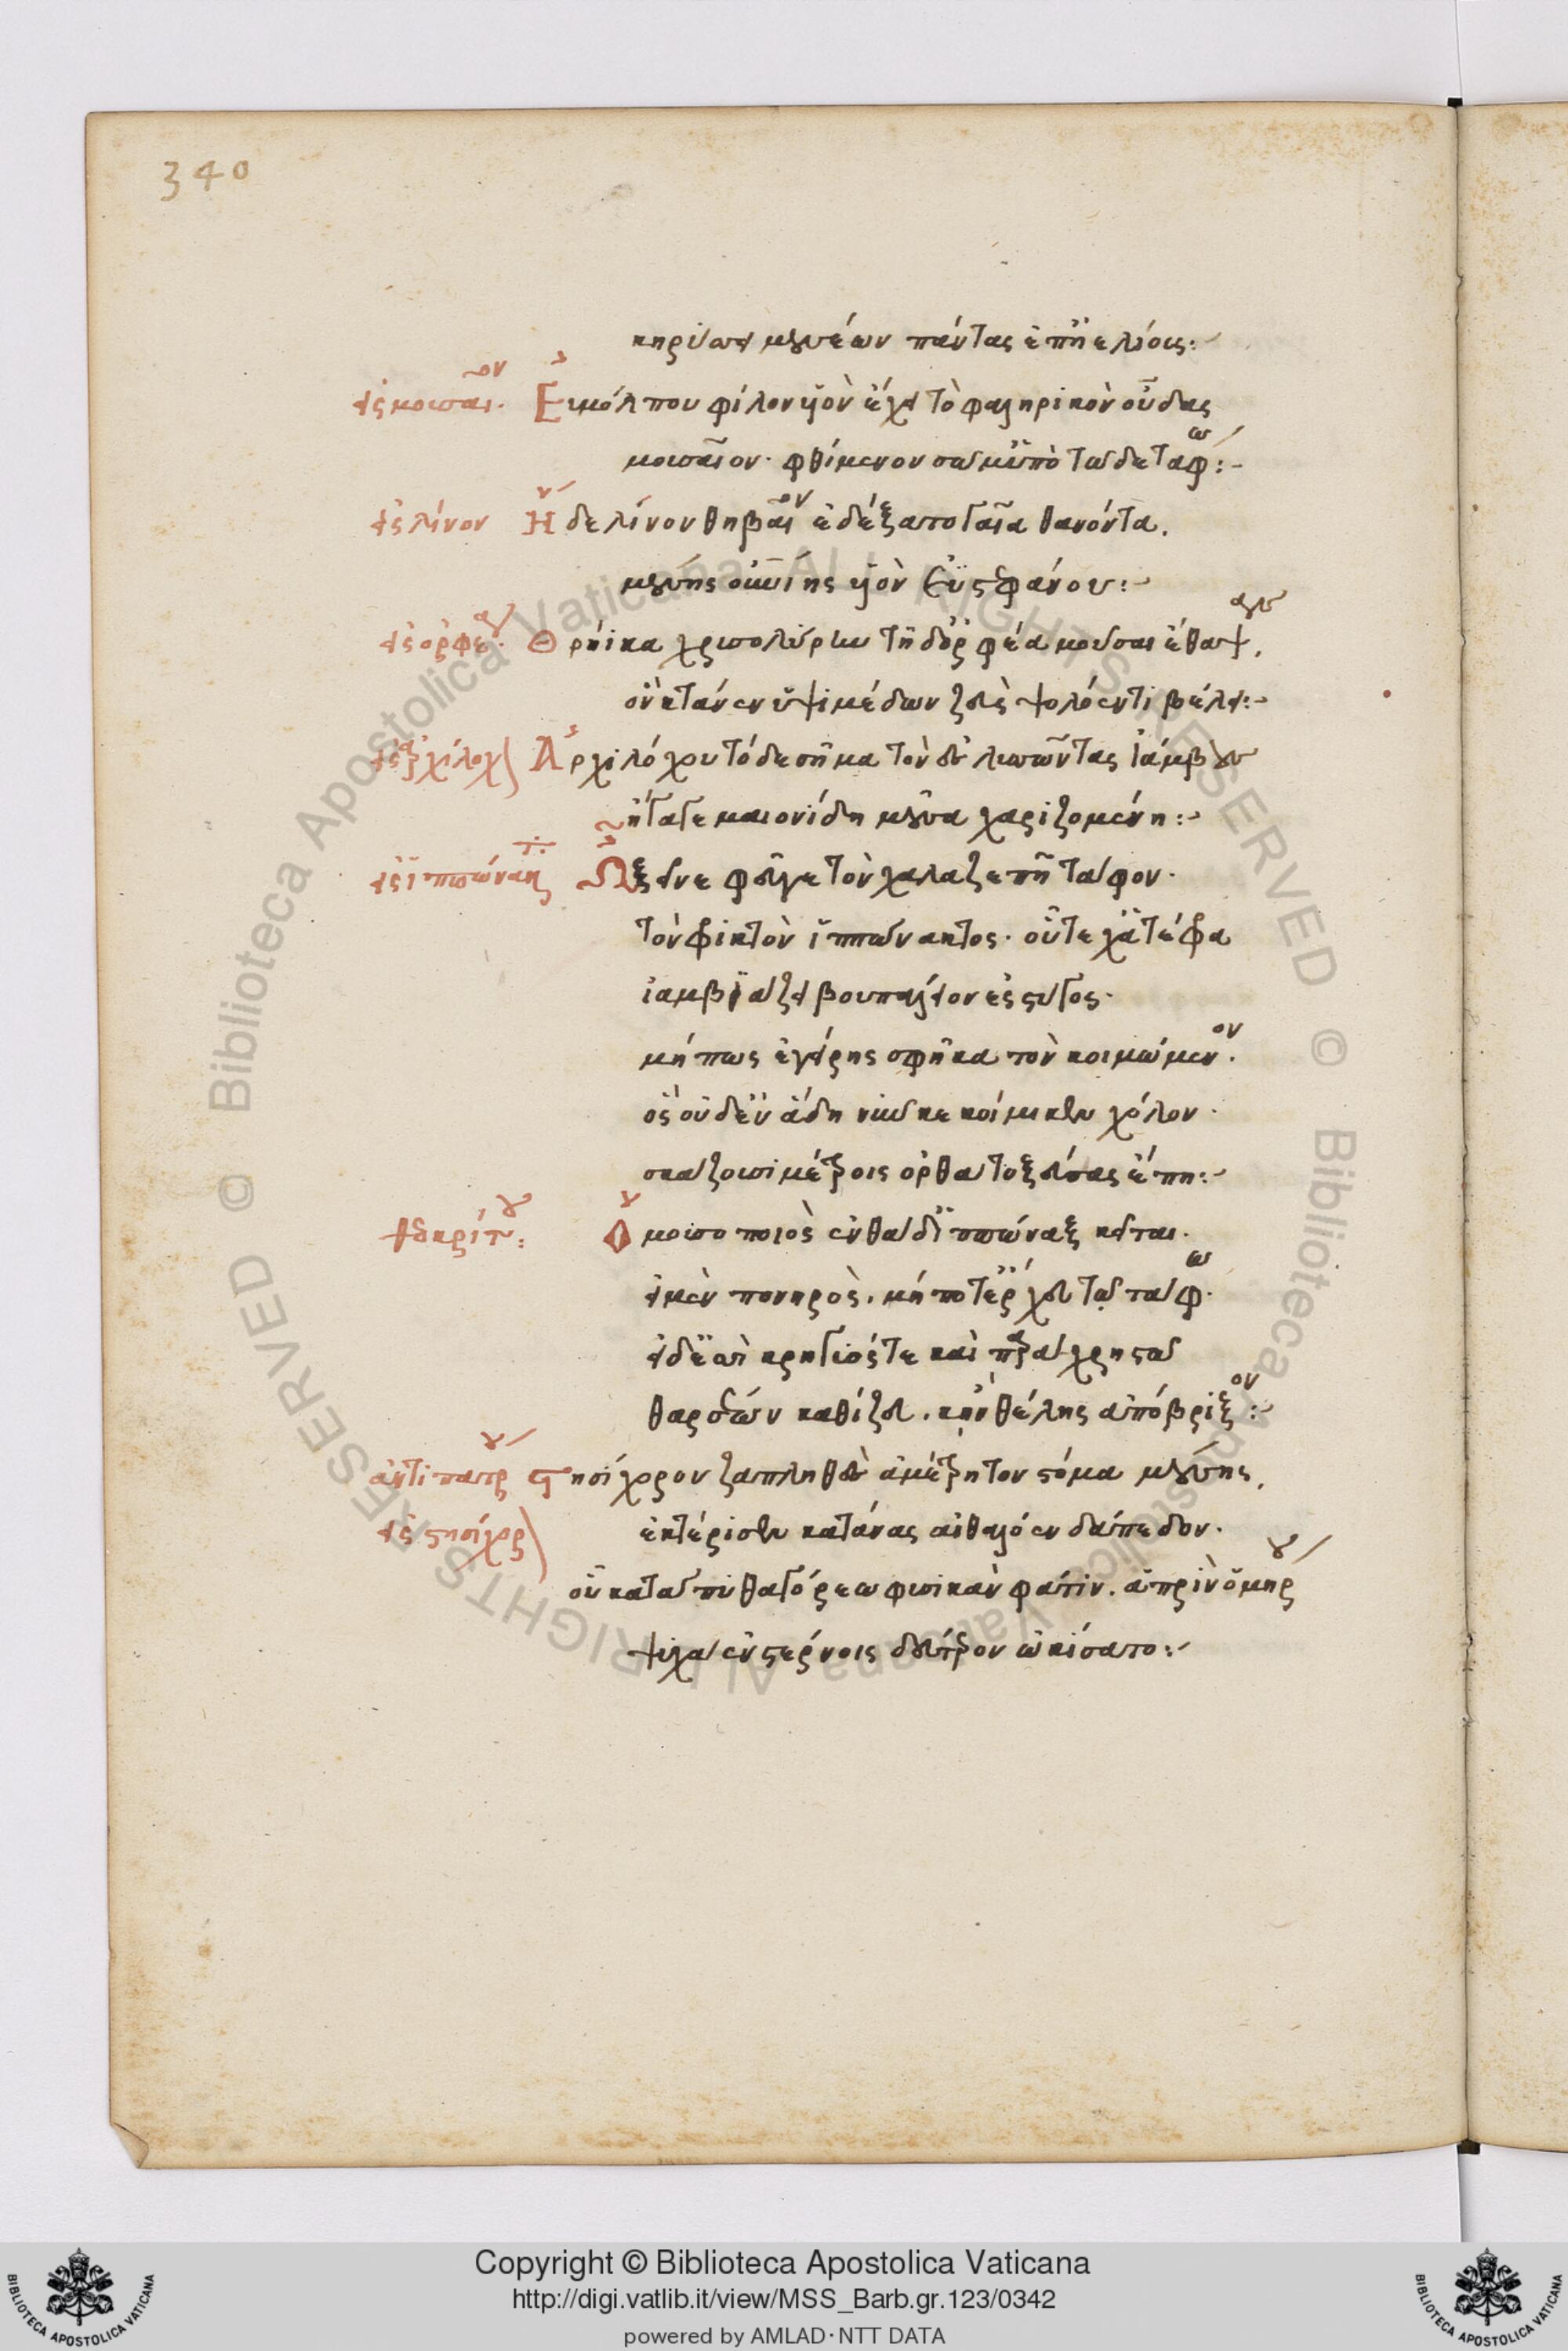 340
κηρύσσει μουσέων πάντας ἐπ' ἠελίοις:-
εἰς μουσαῖον. Εὐμόλπου φίλον υἱὸν ἔχει τὸ φαληρικὸν οὖδας
μουσαῖον. φθίμενον σῶμ' ὑπὸ τῶδε τάφω:-
εἰς λίνον Ἥδε λίνον θηβαῖον ἐδέξατο γαῖα θανόντα.
μούσης οὐρανίης υἱὸν ἐϋστεφάνου:-
εἰς ὀρφέα. Θρήικα χρυσολύρην τῇδ' ὀρφέα μοῦσαι ἔθαψαν.
ὃν κτάνεν ὑψιμέδων ζεὺς ψολόεντι βέλει:-
εἰς ἀρχίλοχον Ἀρχιλόχου τόδε σῆμα τὸν ἐς λυσσῶντας ἰάμβους
ἤγαγε μαιονίδη μοῦσα χαριζομένη:-
εἰς ἱππώνακτα Ὦ ξεῖνε φεῦγε τὸν χαλαζεπῆ τάφον.
τὸν φρικτὸν ἱππώνακτος. οὗ τε χἀ τέφρα
ἰαμβιάζει βουπάλειον ἐς στύγος.
μή πως ἐγείρης σφῆκα τὸν κοιμώμενον.
ὃς οὐδ' ἐν ἅδη νῦν κεκοίμικεν χόλον.
σκάζουσι μέτροις ὀρθὰ τοξεύσας ἔπη:-
θεοκρίτου: Ὁ μουσοποιὸς ἐνθάδ' ἱππώναξ κεῖται.
εἰ μὲν πονηρὸς. μή ποτ' ἔρχευ τῶ τάφω.
εἰ δ' ἐσσὶ κρήγυός τε καὶ παρὰ χρηστῶ
θαρσέων καθίζευ. κἢν θέλης ἀπόβριξον:-
ἀντιπάτρου Στησίχορον ζαπληθὲς ἀμέτρητον στόμα μούσης.
εἰς στησίχορον ἐκτέρισεν κατάνας αἰθαλόεν δάπεδον.
οὗ κατὰ πυθαγόρεω φυσικὰν φάτιν. ἁ πρὶν ὁμήρου
ψυχὰ ἐν στέρνοις δεύτερον ὠκίσατο:-
Copyright © Biblioteca Apostolica Vaticana
http://digi.vatlib.it/view/MSS_Barb.gr.123/0342
powered by AMLAD·NTT DATA